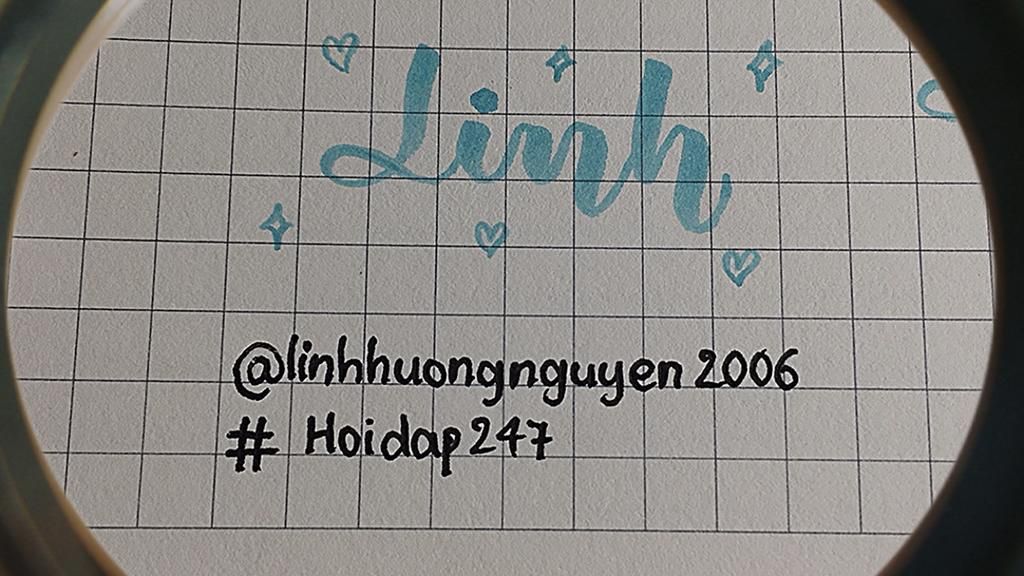 Linh
@linhhuongnguyen2006
# Hoidap247